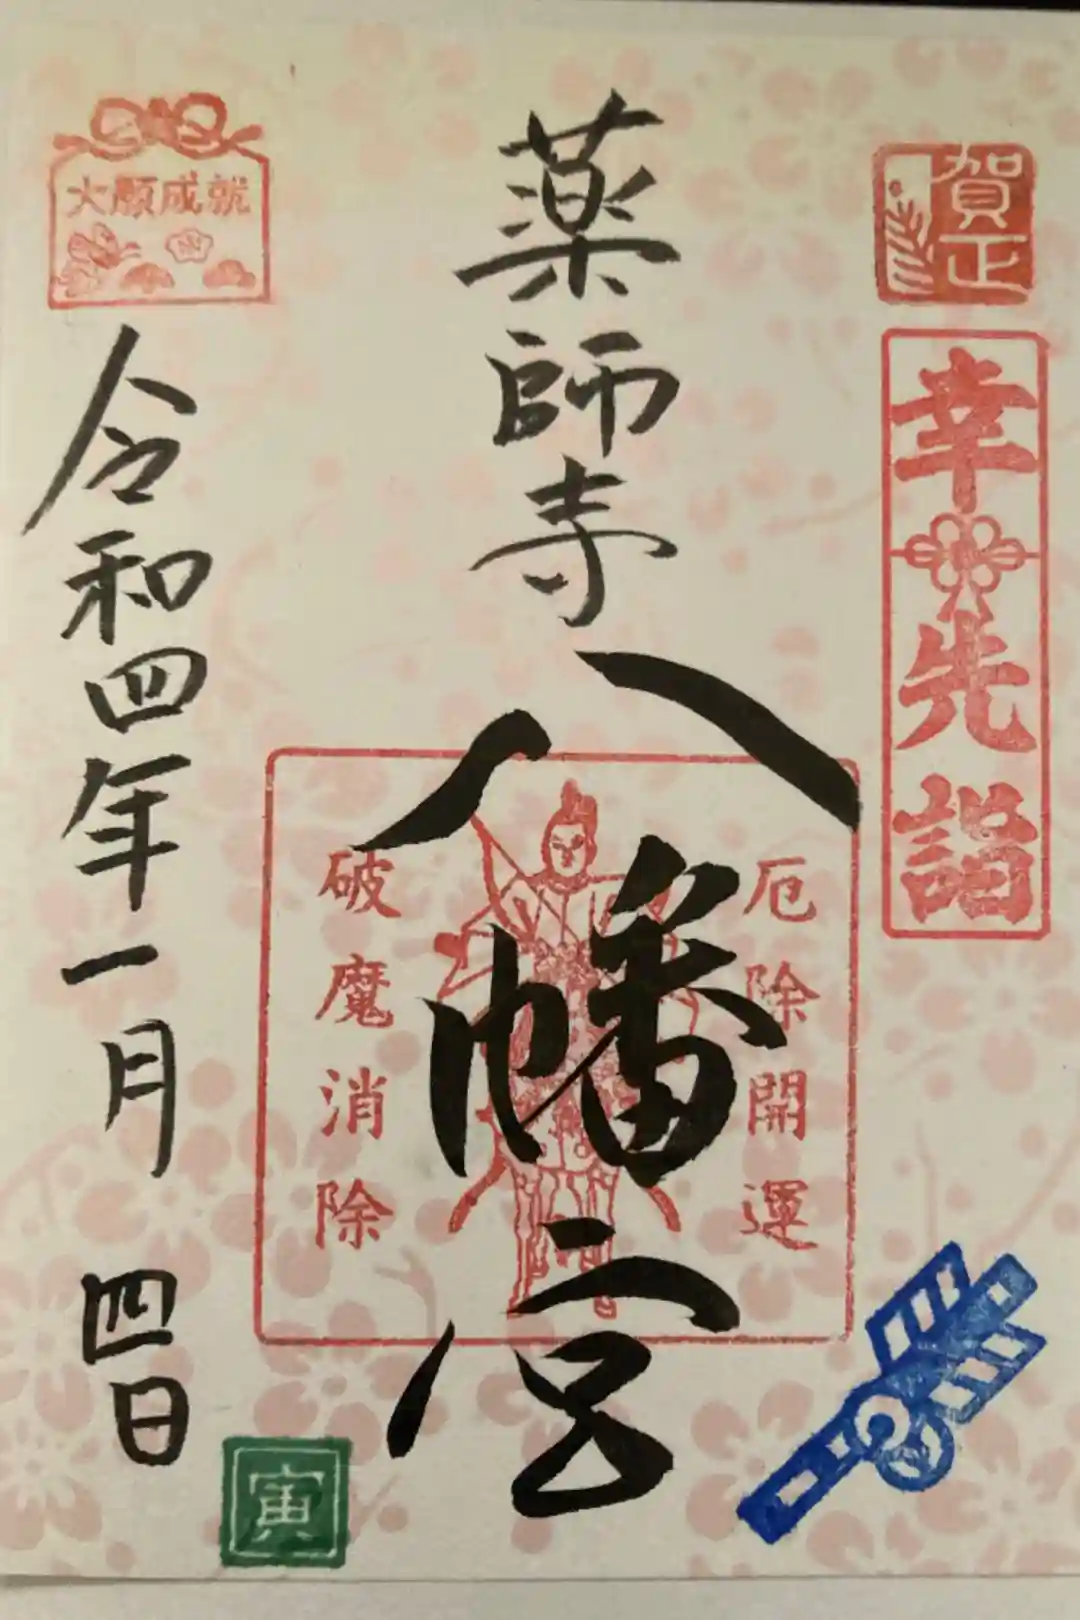 賀正
幸先詣
厄除開運
薬師寺
八幡宮
破魔消除
大願成就
令和四年一月四日
寅